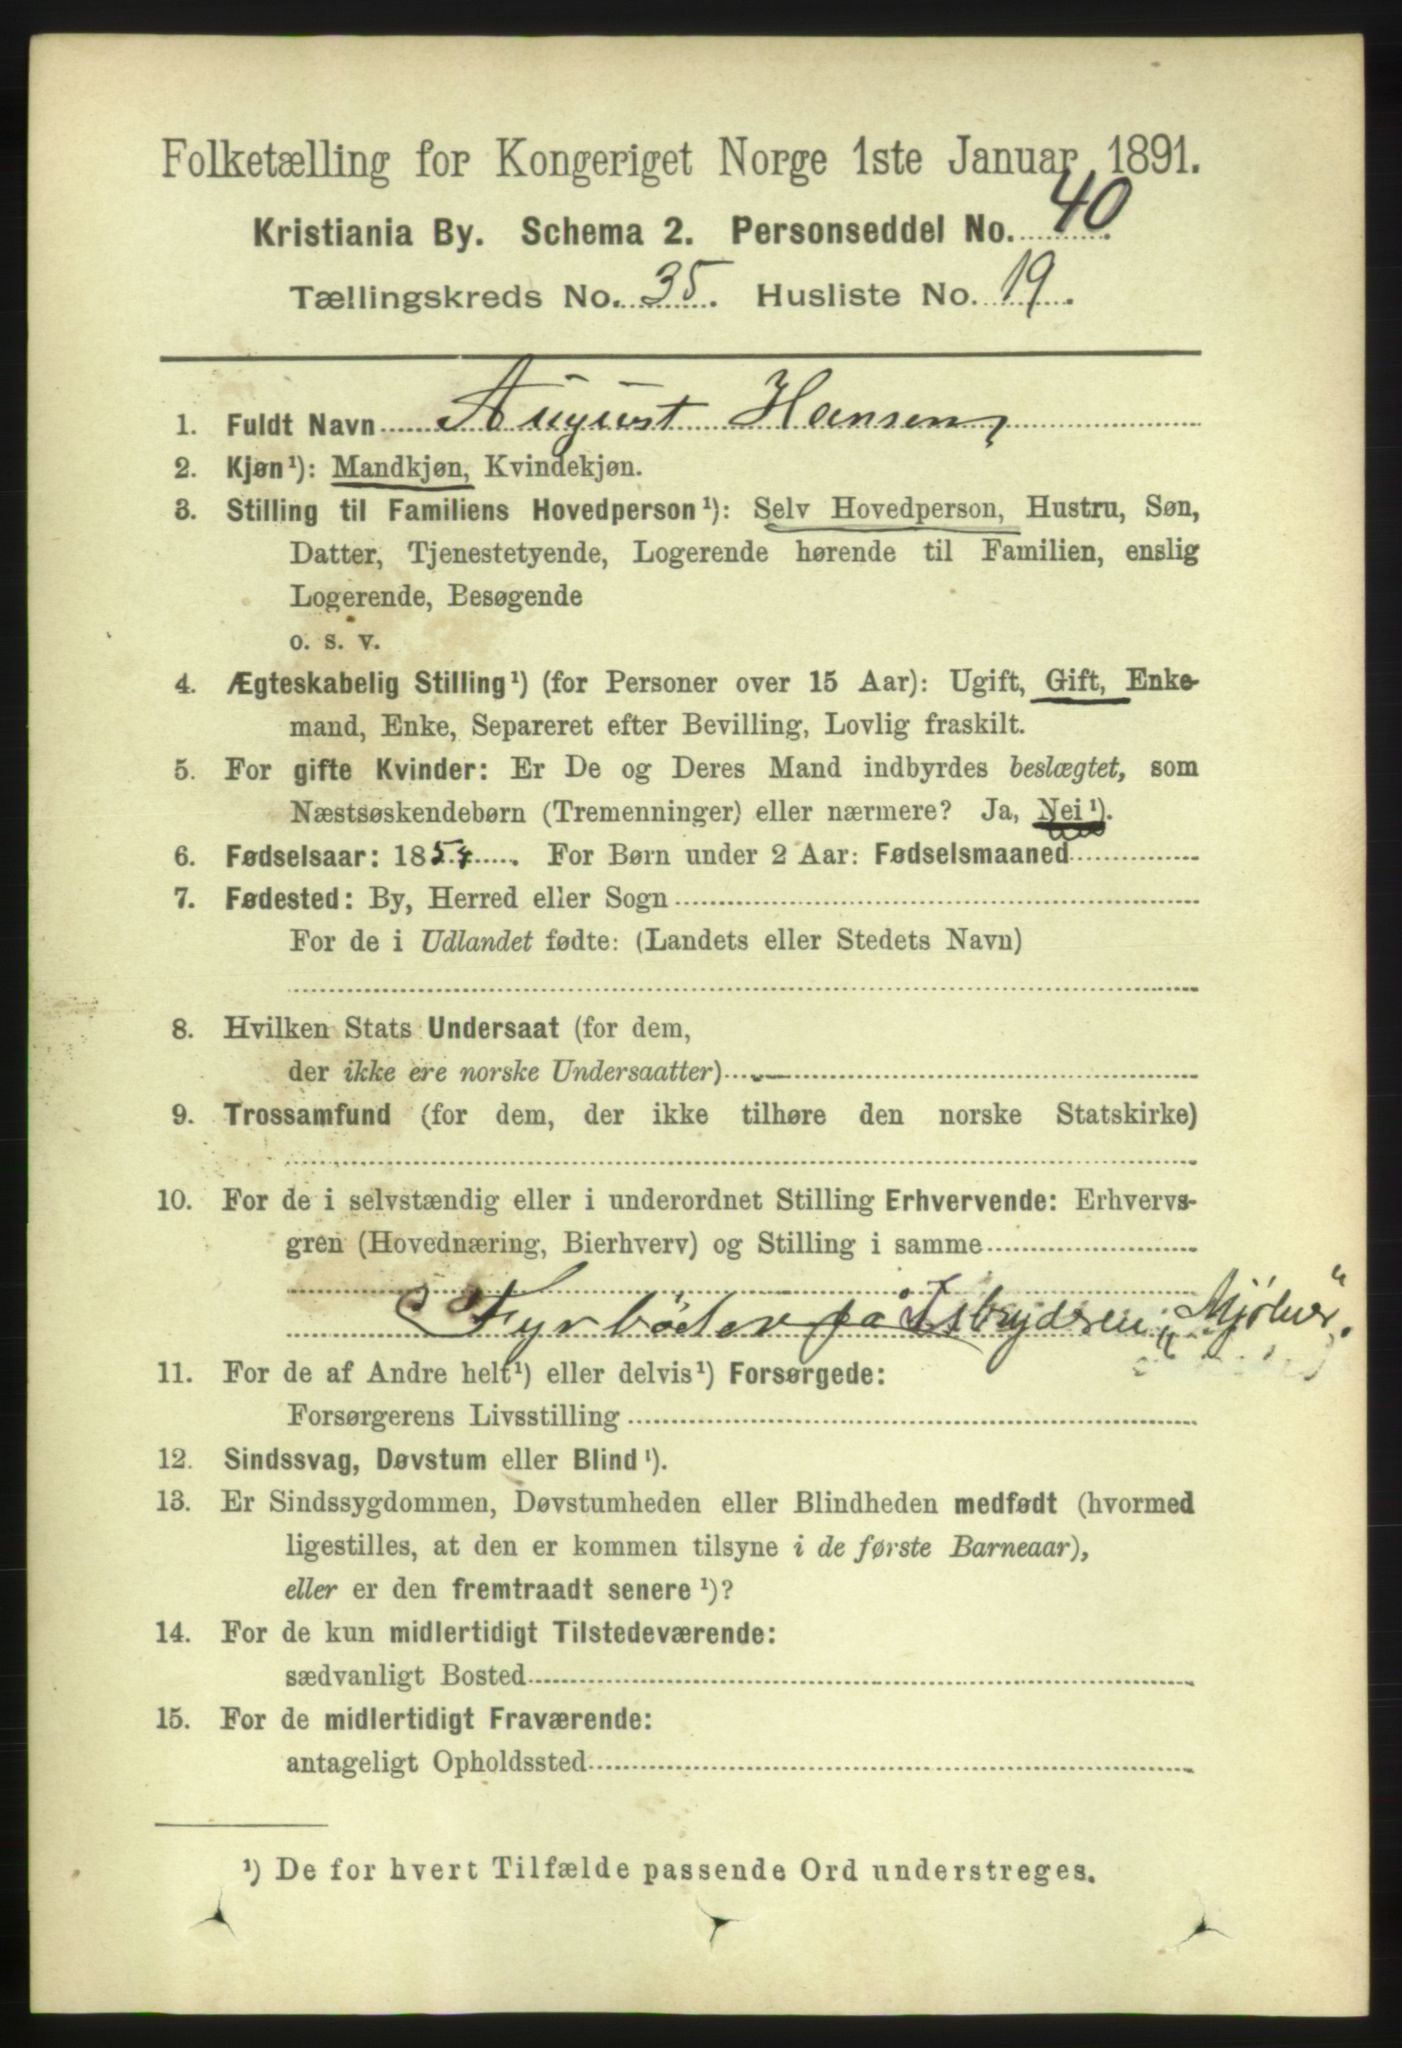 Folketælling for Kongeriget Norge 1ste Januar 1891.
Kristiania By. Schema 2. Personseddel No. 40
Tællingskreds No. 35. Husliste No. 19.
1. Fuldt Navn August Hansen,
2. Kjøn¹): Mandkjøn, Kvindekjøn.
3. Stilling til Familiens Hovedperson¹): Selv Hovedperson, Hustru, Søn,
Datter, Tjenestetyende, Logerende hørende til Familien, enslig
Logerende, Besøgende
o. s. v.
4. Ægteskabelig Stilling¹) (for Personer over 15 Aar): Ugift, Gift, Enke-
mand, Enke, Separeret efter Bevilling, Lovlig fraskilt.
5. For gifte Kvinder: Er De og Deres Mand indbyrdes beslægtet, som
Næstsøskendebørn (Tremenninger) eller nærmere? Ja, Nei¹).
6. Fødselsaar: 1854. For Børn under 2 Aar: Fødselsmaaned
7. Fødested: By, Herred eller Sogn
For de i Udlandet fødte: (Landets eller Stedets Navn)
8. Hvilken Stats Undersaat (for dem,
der ikke ere norske Undersaatter)
9. Trossamfund (for dem, der ikke tilhøre den norske Statskirke)
10. For de i selvstændig eller i underordnet Stilling Erhvervende: Erhvervs-
gren (Hovednæring, Bierhverv) og Stilling i samme
Fyrböder på Isbryderen „Mjølner“.
11. For de af Andre helt¹) eller delvis¹) Forsørgede:
Forsørgerens Livsstilling
12. Sindssvag, Døvstum eller Blind¹).
13. Er Sindssygdommen, Døvstumheden eller Blindheden medfødt (hvormed
ligestilles, at den er kommen tilsyne i de første Barneaar),
eller er den fremtraadt senere¹)?
14. For de kun midlertidigt Tilstedeværende:
sædvanligt Bosted
15. For de midlertidigt Fraværende:
antageligt Opholdssted
¹) De for hvert Tilfælde passende Ord understreges.